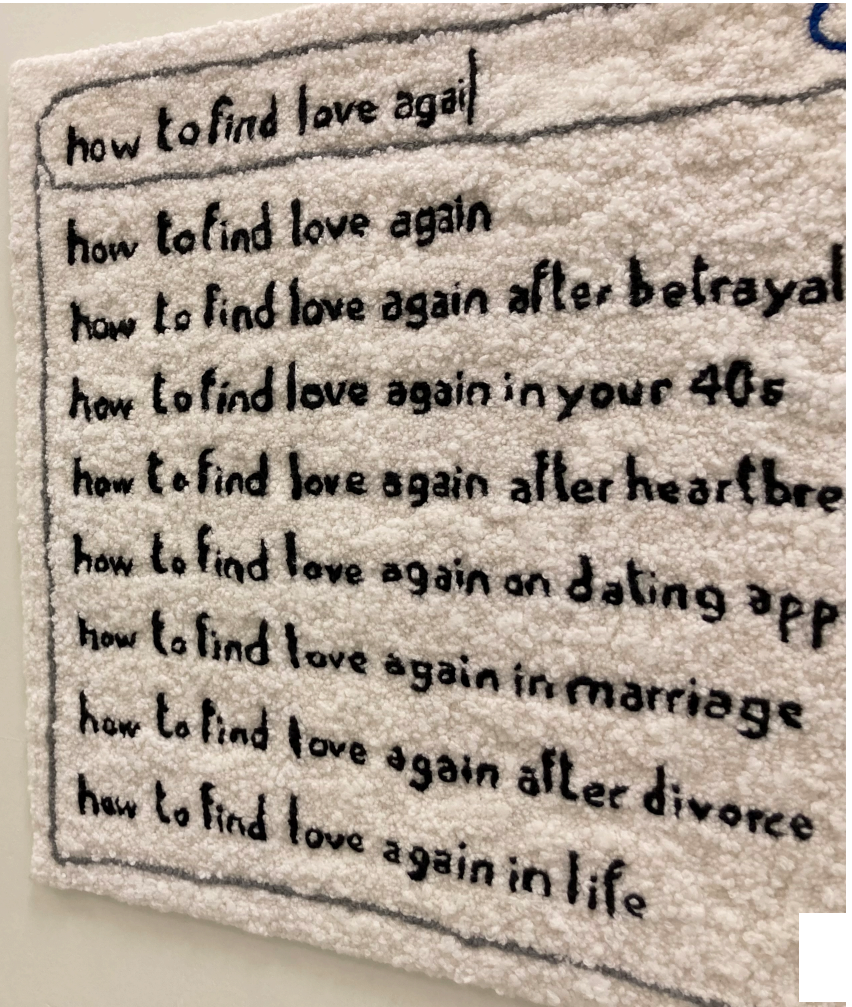 how to find love agai
how to find love again
how to find love again after betrayal
how to find love again in your 40s
how to find love again after heartbre
how to find love again on dating app
how to find love again in marriage
how to find love again after divorce
how to find love again in life